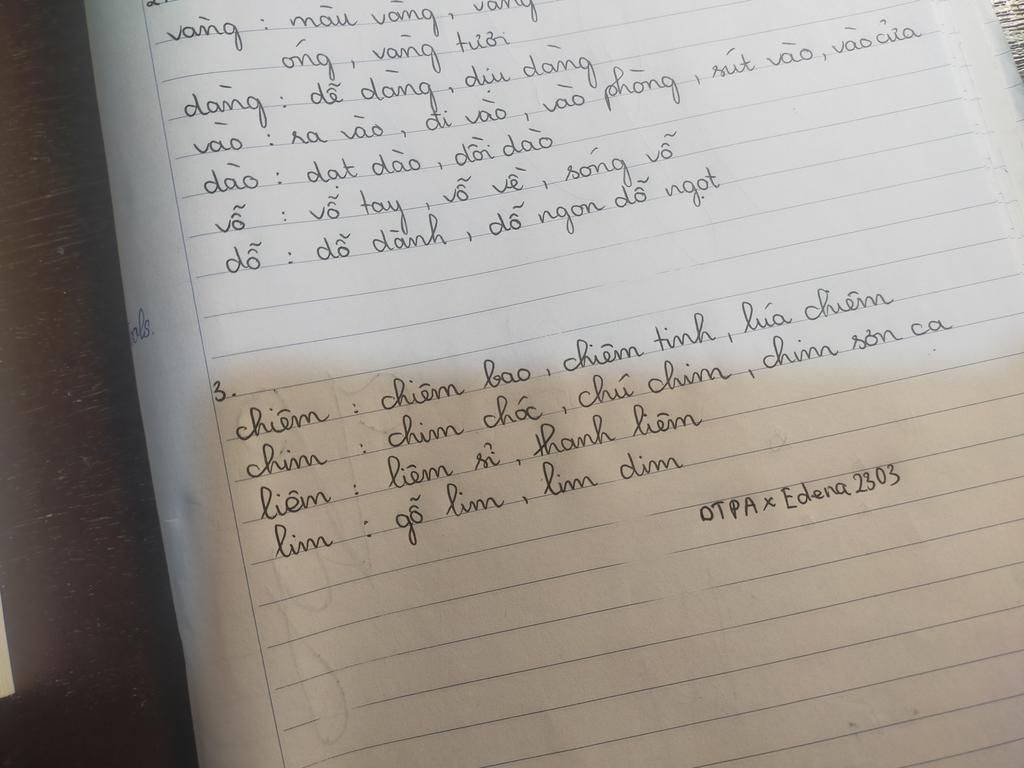 vàng : màu vàng, vàng
óng, vàng tươi
dàng : dễ dàng, dịu dàng
vào : ra vào, đi vào, vào phòng, rút vào, vào cửa
dào : dạt dào, dồi dào
vỗ : vỗ tay, vỗ về, sóng vỗ
dỗ : dỗ dành, dỗ ngon dỗ ngọt
3.
chiêm : chiêm bao, chiêm tinh, lúa chiêm
chim : chim chóc, chú chim, chim sơn ca
liêm : liêm sỉ, thanh liêm
lim : gỗ lim, lim dim
DTPA x Edena2303